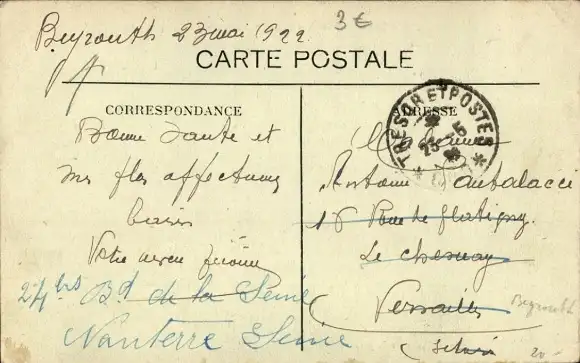 Beyrouth 23 mai 1922
3€
CARTE POSTALE
CORRESPONDANCE
ADRESSE
TRESOR ET POSTES
Bonne Santé et
mes plus affectueux
baisers
Votre neveu
24 bis Bd de la Seine
Nanterre Seine
Madame
Antoine
18 Rue de Flatigny
Le Chesnay
Versailles
Beyrouth
20-